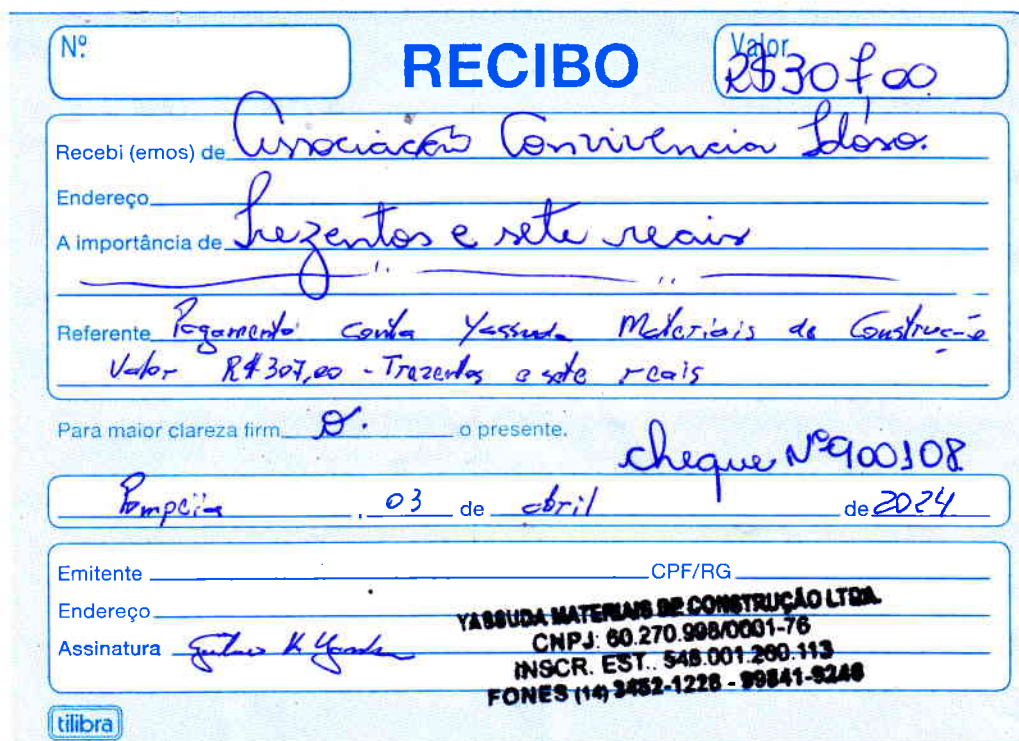 Nº
RECIBO
Valor
R$ 307,00
Recebi (emos) de Associação Convivência Idoso.
Endereço
A importância de Trezentos e sete reais
Referente Pagamento conta Yassuda Materiais de Construção
Valor R$ 307,00 - Trezentos e sete reais
Para maior clareza firm o. o presente.
cheque Nº 900108
Pompéia, 03 de abril de 2024
Emitente CPF/RG
Endereço
YASSUDA MATERIAIS DE CONSTRUÇÃO LTDA.
CNPJ: 60.270.998/0001-76
Assinatura
INSCR. EST.. 548.001.260.113
FONES (14) 3452-1228 - 99841-9248
tilibra